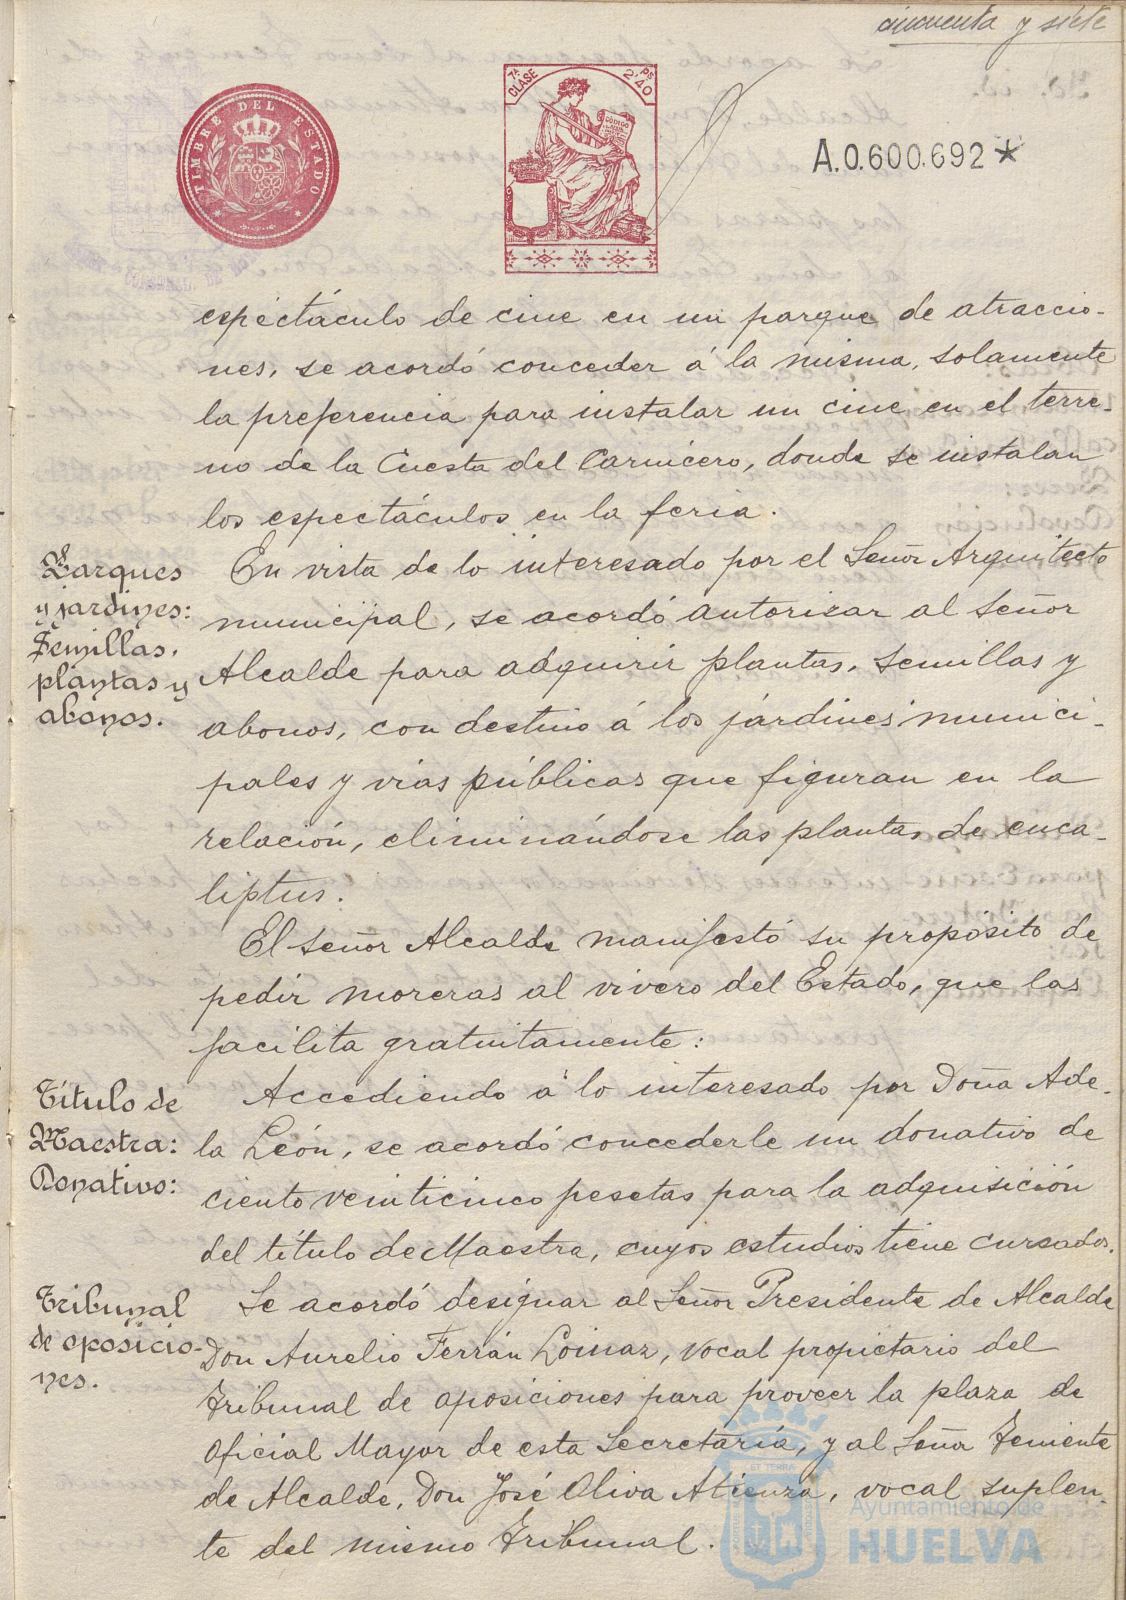 cincuenta y siete
TIMBRE DEL ESTADO
7ª CLASE
2'40 PS
CÓDIGO
A.0.600.692 *
espectáculo de cine en un parque de atraccio-
nes, se acordó conceder á la misma, solamente
la preferencia para instalar un cine en el terre-
no de la Cuesta del Carnicero, donde se instalan
los espectáculos en la feria.
Parques
y jardines:
Semillas,
plantas y
abonos.
En vista de lo interesado por el Señor Arquitecto
municipal, se acordó autorizar al señor
Alcalde para adquirir plantas, semillas y
abonos, con destino á los jardines munici-
pales y vías públicas que figuran en la
relación, eliminándose las plantas de euca-
liptus.
El señor Alcalde manifestó su propósito de
pedir moreras al vivero del Estado, que las
facilita gratuitamente:
Título de
Maestra:
Donativo:
Accediendo á lo interesado por Doña Ade-
la León, se acordó concederle un donativo de
ciento veinticinco pesetas para la adquisición
del título de Maestra, cuyos estudios tiene cursados.
Tribunal
de oposicio-
nes.
Se acordó designar al Señor Presidente de Alcalde
Don Aurelio Ferrán Loinaz, vocal propietario del
Tribunal de oposiciones para proveer la plaza de
Oficial Mayor de esta Secretaría, y al Señor Teniente
de Alcalde, Don José Oliva Atienza, vocal suplen-
te del mismo Tribunal.
Ayuntamiento de
HUELVA